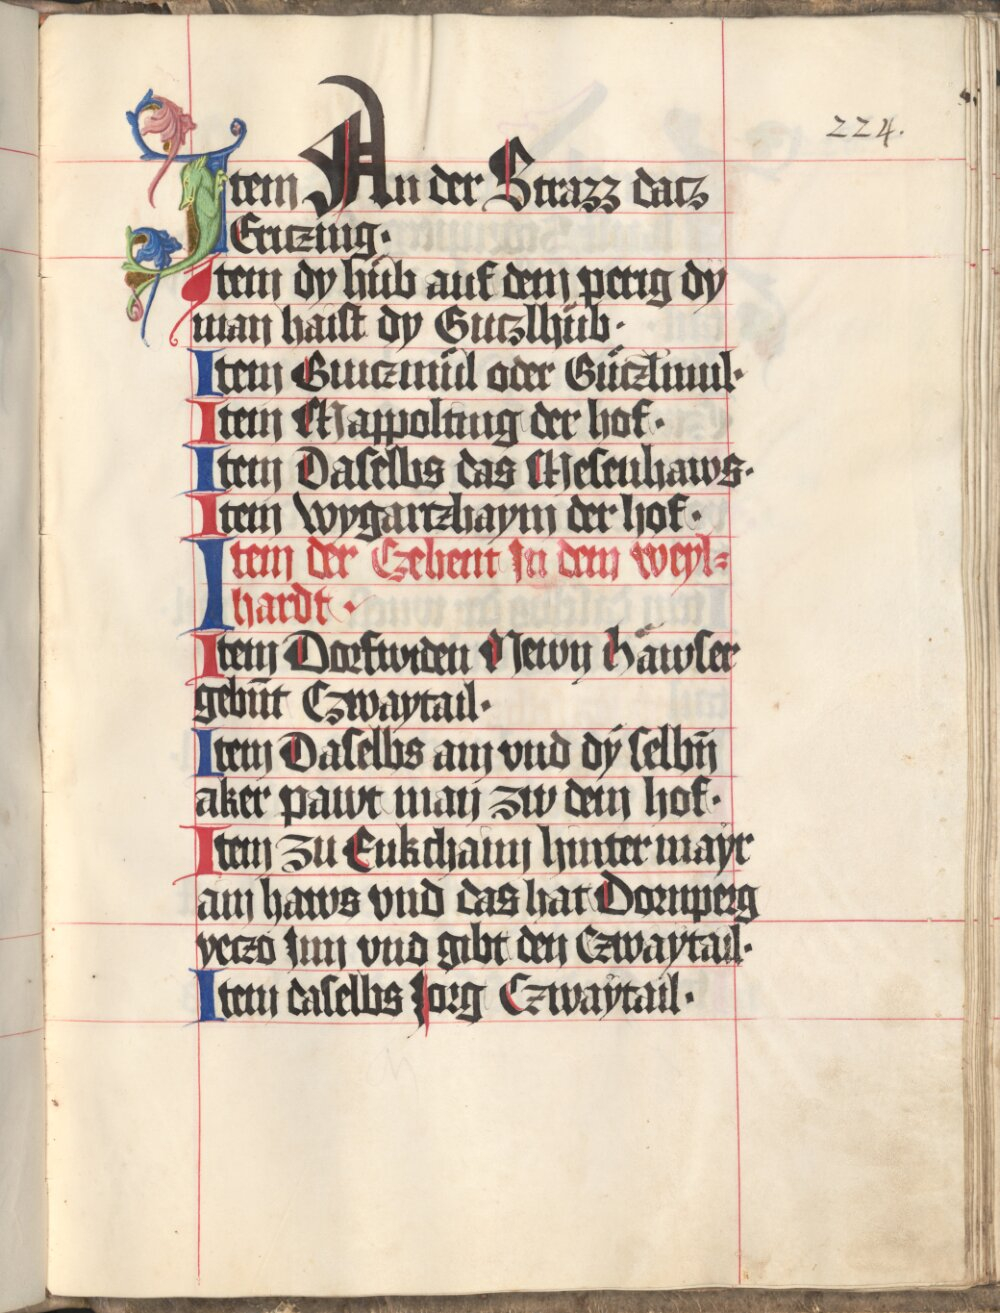 224.
Item An der Strazz dacz
Ericzing.
Item dy hŭb auf dem perig dy
man haist dy Guczlhŭb.
Item Gwiczmŭl oder Gŭczlmul.
Item Mappolting der hof.
Item Daselbs das Mesenhaws.
Item Wygartzhaym der hof.
Item der Czehent In dem weyl-
hardt.
Item Dorfwiden Newn Häwser
gebn̄t Czwaytail.
Item Daselbs ain vnd dÿ selbn̄
aker pawt man zw dem hof.
Item Zu Enkchaim hintermayr
ain haws vnd das hat Dornperg
yeczo Inn vnd gibt den Czwaytail.
Item daselbs Jorg Czwaÿtail.